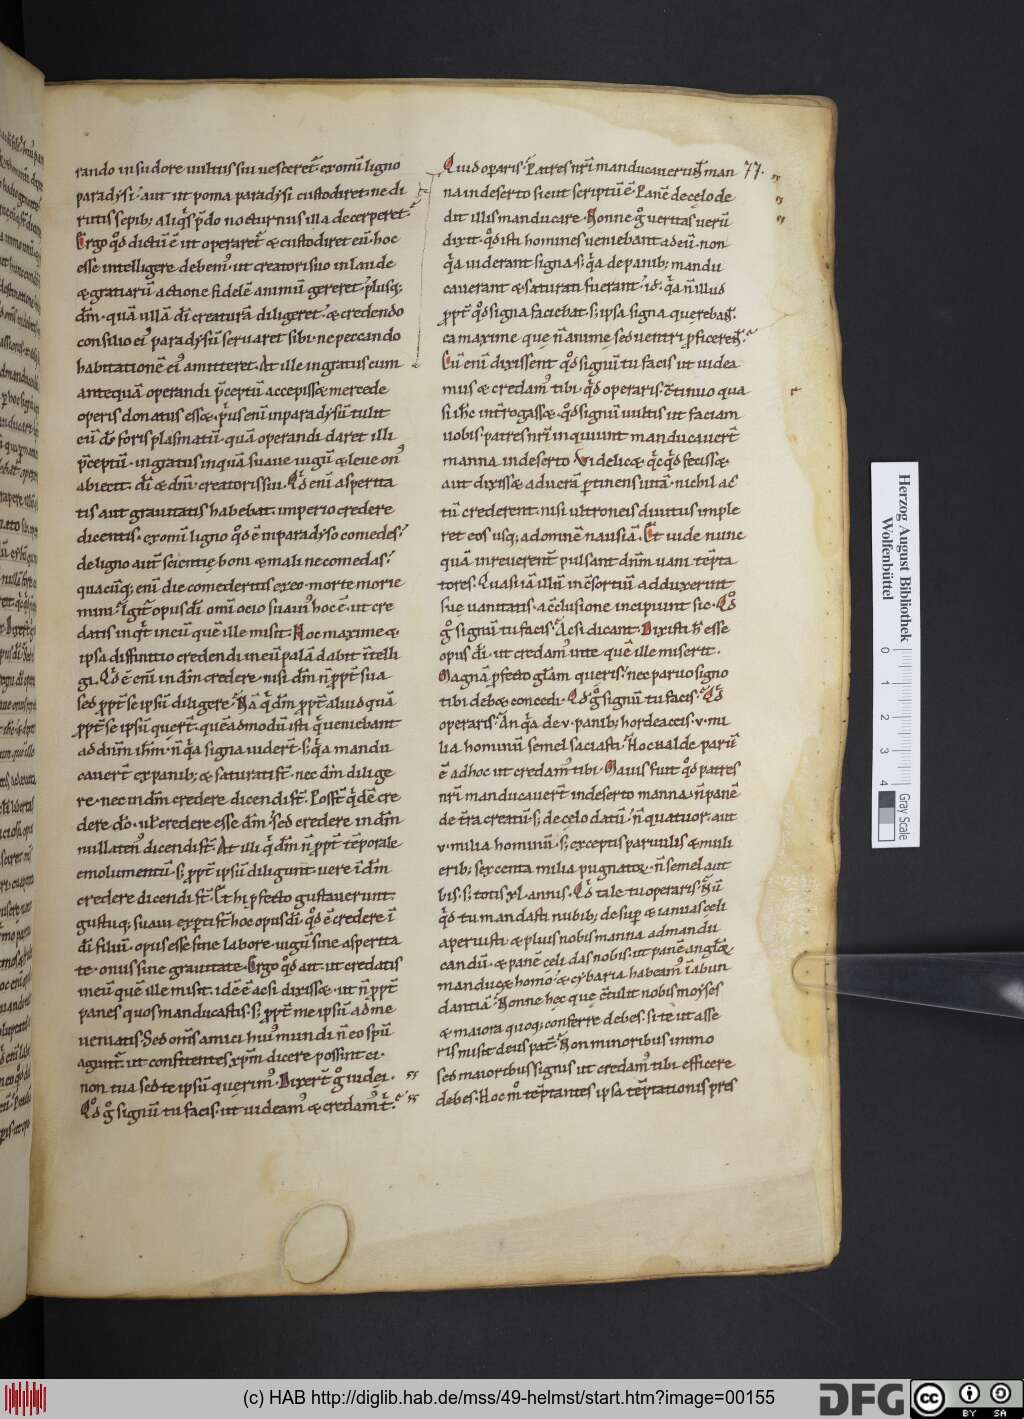 rando in sudore uultus sui uesceret̄ ex omi ligno
paradysi. aut ut poma paradysi custodiret. ne di
rutis sepib; aliqͥs p̄do nocturnus illa decerperet.
Ergo qͦd dictū ē ut operaret̄ & custodiret eū. hoc
esse intelligere debem᾽. ut creatori suo in laude
& gratiarū actione fidelē animū gereret. plusq;
dm̄. quā ullā di creaturā diligeret. & credendo
consilio ei᾽ paradysū seruaret sibi. ne peccando
habitationē ei᾽ amitteret. At ille ingratus cum
antequā operandi p̄ceptū accepiss& mercede
operis donatus ess&. pͥus enī in paradysū tulit
eū ds̄ foris plasmatū. quā operandi daret illi
p̄ceptū. ingratus inquā suaue iugū & leue on᾽
abiecit. di & dn̄i creatoris sui. Qͥd enī asperita
tis aut grauitatis habebat. imperio credere
dicentis. ex omi ligno qͦd ē in paradyso comedes.
de ligno aut̄ scientie boni & mali ne comedas.
quacūq; enī die comederitis ex eo. morte morie
mini. Igit̄ opus di omi ocio suaui᾽ hoc ē. ut cre
datis inqͥt in eū quē ille misit. Hoc maxime &
ipsa diffinitio credendi in eū palā dabit intelli
gi. Qͥd ē enī in dm̄ credere. nisi dm̄ n̄ ppt̄ sua
sed ppt̄ se ipsū diligere. Nā qͥ dm̄ ppt̄ aliud quā
ppt̄ se ipsū querit. quēadmodū isti qͥ ueniebant
ad dnm̄ ihm̄. n̄ qͥa signa uidert̄. s; qͥa mandu
cauert̄ ex panib; & saturati st̄. nec dm̄ dilige
re. nec in dm̄ credere dicendi st̄. Posst̄ qͥdē cre
dere do. ut credere esse dm̄. sed credere in dm̄
nullaten᾽ dicendi st̄. At illi qͥ dm̄ n̄ ppt̄ tēporale
emolumentū. s; ppt̄ ipsū diligunt. uere in dm̄
credere dicendi st̄. Et hi pfecto gustauerunt.
gustuq; suaui experti st̄ hoc opus di. qͦd ē credere in
di filiū. opus esse sine labore. iugū sine asperita
te. onus sine grauitate. Ergo qͦd ait. ut credatis
in eū quē ille misit. idē ē ac si dixiss&. ut n̄ ppt̄
panes quos manducastis. s; ppt̄ me ipsū ad me
ueniatis. Sed oms̄ amici hui᾽ mundi n̄ eo spū
agunt̄. ut confitentes xpm̄ dicere possint ei.
non tua sed te ipsū querim᾽. Dixert̄ gͦ iudei.
Qͦd gͦ signū tu facis. ut uideam᾽ & credam᾽ t̄.
Quid operis. Patres nr̄i manducauerunt man 77.
na in deserto sicut scriptū ē. Panē de celo de
dit illis manducare. Nonne gͦ ueritas uerū
dixit. qͦd isti homines ueniebant ad eū. non
qͥa uiderant signa. s; qͥa de panib; mandu
cauerant & saturati fuerant. id. qͥa n̄ illud
ppt̄ qͦd signa faciebat. s; ipsa signa querebant.
ea maxime que n̄ anime sed uentri pficerent.
Cū enī dixissent qͦd signū tu facis ut uidea
mus & credam᾽ tibi. qͥd operaris. c̄tinuo qua
si ihc̄ int̄rogass&. qͦd signū uultis ut faciam
uobis. patres nr̄i inquiunt manducauert̄
manna in deserto. Videlic& qͥcqͥd feciss&
aut dixiss& ad uerā ptinens uitā. nichil ac̄
tū crederent. nisi ultroneis diuitus imple
ret eos usq; ad omnē nausiā. Et uide nunc
quā inreuerent̄ pulsant dnm̄ uani tēpta
tores. Quasi iā illū in c̄sortiū adduxerint
sue uanitatis. a c̄clusione incipiunt sic. Qͦd
gͦ signū tu facis. Ac si dicant. Dixisti h̄ esse
opus di. ut credam᾽ in te quē ille miserit.
Magnā pfecto glām queris. nec paruo signo
tibi deb& concedi. Qͦd gͦ signū tu facis. Qͥd
operaris. An qͥa de .v. panib; hordeaceis .v. mi
lia hominū semel saciasti. Hoc ualde parū
ē adhoc ut credam᾽ tibi. Maius fuit qͦd patres
nr̄i manducauert̄ in deserto manna. n̄ panē
de tr̄a creatū. s; de celo datū. n̄ quatuor. aut
.v. milia hominū. s; exceptis paruulis & muli
erib; sexcenta milia pugnatoꝝ. n̄ semel aut
bis. s; totis xl. annis. Qͥd tale tu operaris. Nū
qͥd tu mandasti nubib; desup. & ianuas celi
aperuisti. & pluis nobis manna ad mandu
candū. & panē celi das nobis. ut panē angloꝝ
manduc& homo. & cybaria habeam᾽ in abun
dantiā. Nonne hec que c̄tulit nobis moyses
& maiora quoq; conferre debes. si te ut asse
ris misit deus pat̄. Non minoribus immo
sed maioribus signis ut credam᾽ tibi. efficere
debes. Hoc mͦ tēptantes ipsa tēptationis pres
Herzog August Bibliothek
Wolfenbüttel
0 1 2 3 4
Gray Scale
(c) HAB http://diglib.hab.de/mss/49-helmst/start.htm?image=00155
DFG
cc BY SA